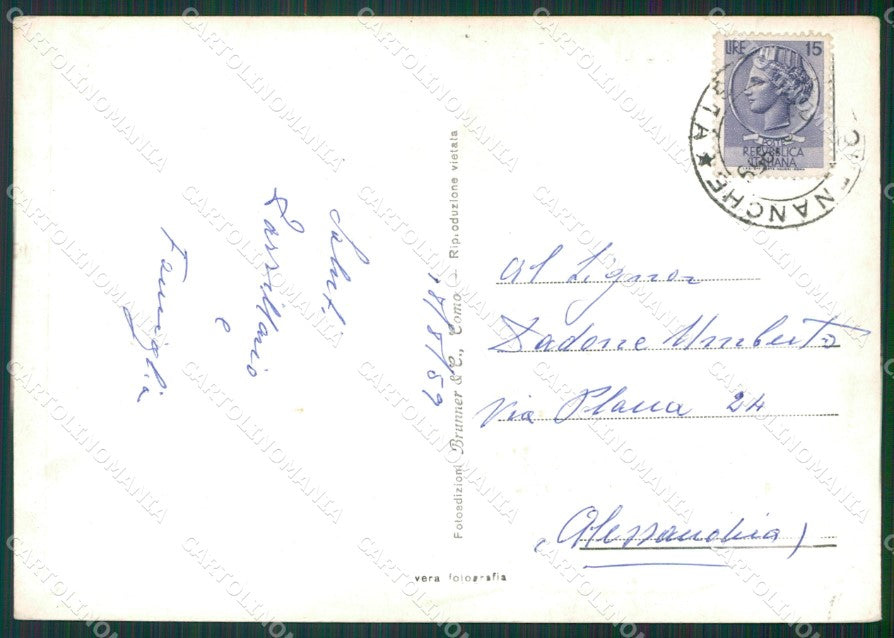 Saluti
Passillario
e
Famiglia
18/8/59
Fotoedizioni Brunner & C., Como - Riproduzione vietata
vera fotografia
LIRE 15
POSTE
REPVBBLICA
ITALIANA
NANCHE
Al Signor
Zadone Umberto
Via Plana 24
(Alessandria)
CARTOLINOMANIA